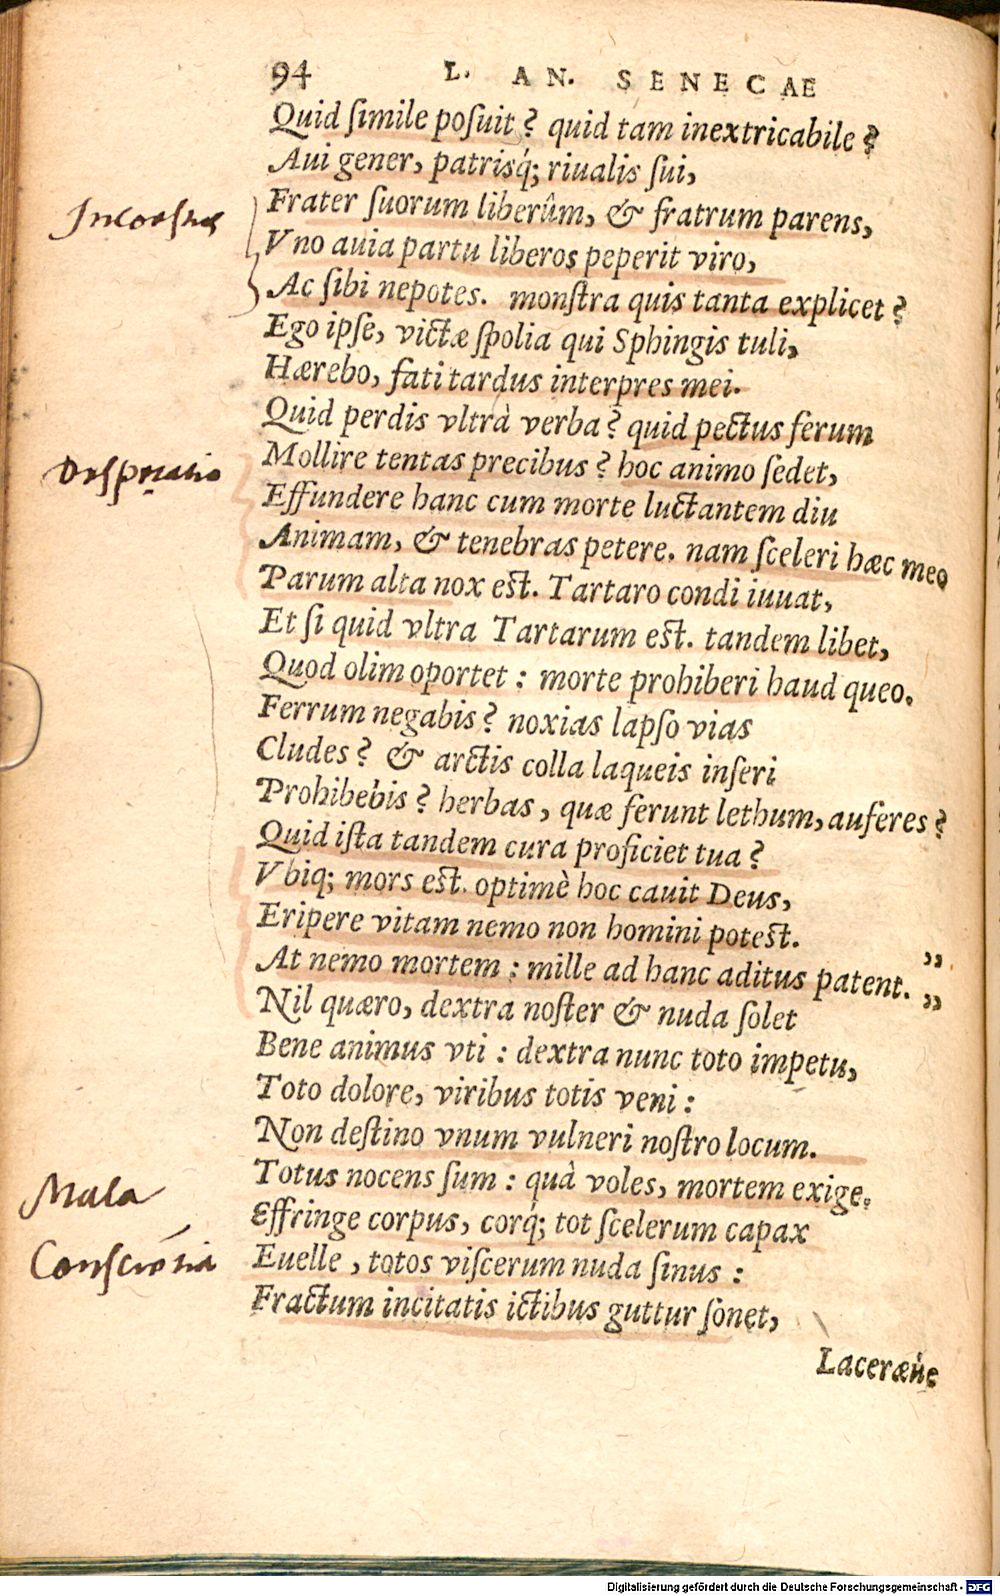 94 L. AN. SENECAE
Quid ſimile poſuit? quid tam inextricabile?
Aui gener, patrisq́; riualis ſui,
Incoestus
Frater ſuorum liberûm, & fratrum parens,
Vno auia partu liberos peperit viro,
Ac ſibi nepotes. monſtra quis tanta explicet?
Ego ipſe, victæ ſpolia qui Sphingis tuli,
Hærebo, fati tardus interpres mei.
Quid perdis vltrà verba? quid pectus ferum
Desperatio
Mollire tentas precibus? hoc animo ſedet,
Effundere hanc cum morte luctantem diu
Animam, & tenebras petere. nam ſceleri hæc meo
Parum alta nox eſt. Tartaro condi iuuat,
Et ſi quid vltra Tartarum eſt. tandem libet,
Quod olim oportet: morte prohiberi haud queo.
Ferrum negabis? noxias lapſo vias
Cludes? & arctis colla laqueis inſeri
Prohibebis? herbas, quæ ferunt lethum, auferes?
Quid iſta tandem cura proficiet tua?
Vbiq; mors eſt. optimè hoc cauit Deus,
Eripere vitam nemo non homini poteſt.
At nemo mortem: mille ad hanc aditus patent. ”
Nil quæro, dextra noſter & nuda ſolet ”
Bene animus vti: dextra nunc toto impetu,
Toto dolore, viribus totis veni:
Non deſtino vnum vulneri noſtro locum.
Totus nocens ſum: quà voles, mortem exige.
Mala
Effringe corpus, corq́; tot ſcelerum capax
Conscientia
Euelle, totos viſcerum nuda ſinus:
Fractum incitatis ictibus guttur ſonet,
Digitalisierung gefördert durch die Deutsche Forschungsgemeinschaft - DFG